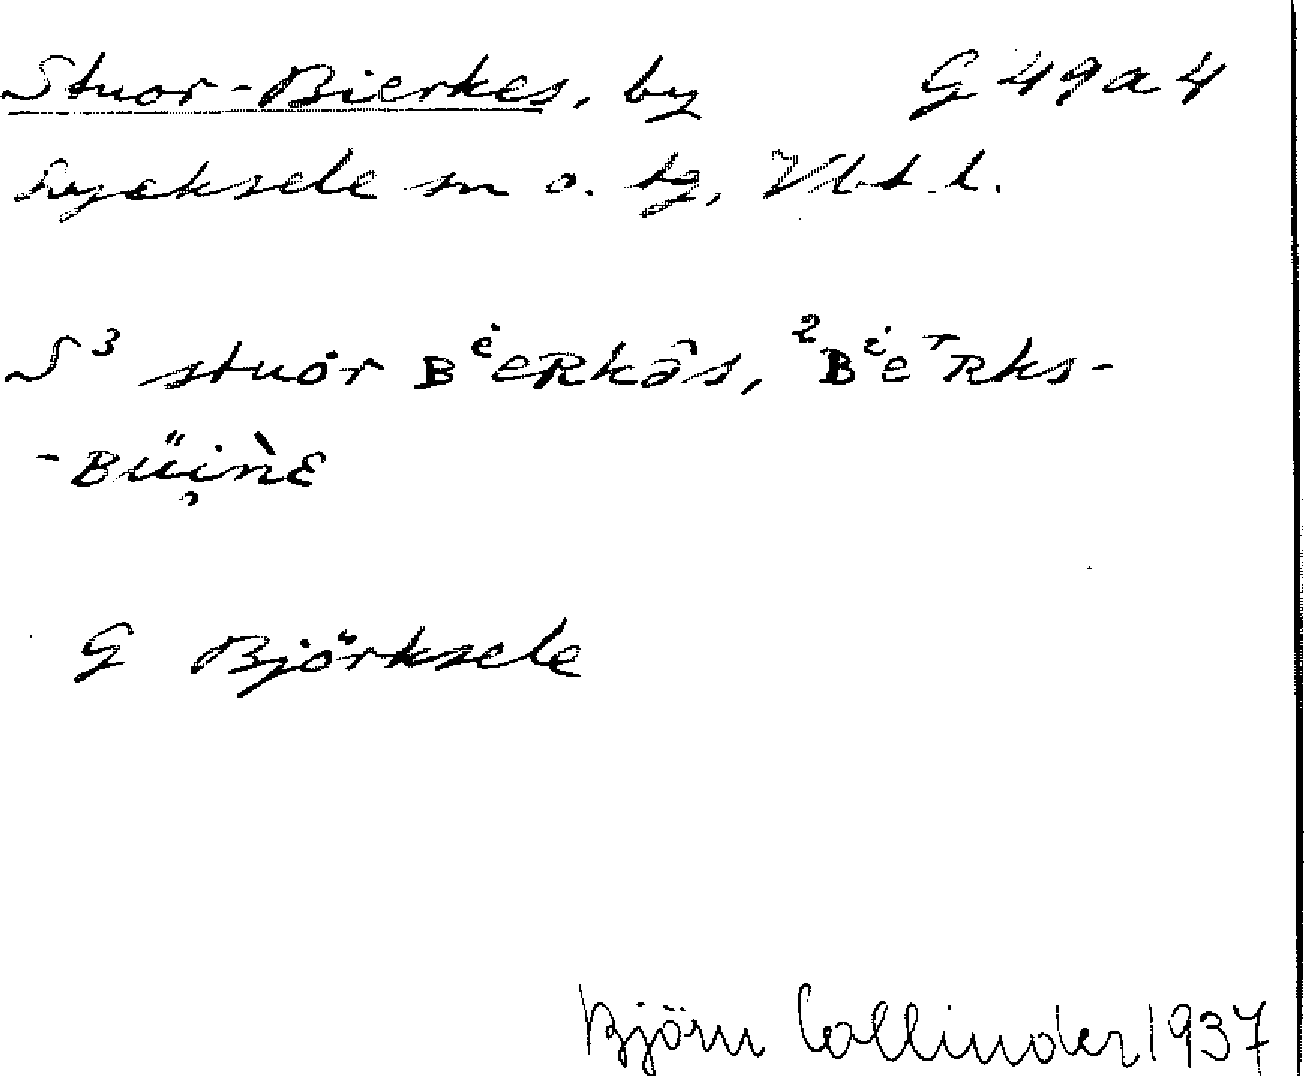 Stuor-Bierkes, by G 49a4
Lycksele sn o. tg, Vb.l.l.
S³ stuȯr Bᵉ̇eRkâs, ²BⁱeʳRks-
-Büi̹ǹɛ
G Björksele
Björn Collinder 1937